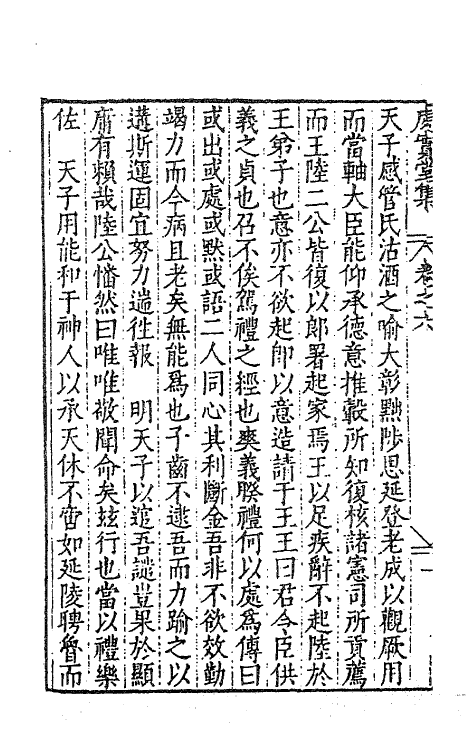 處實堂集　卷之六　一
天子感管氏沽酒之喻大彰黜陟思延登老成以觀厥用
而當軸大臣能仰承德意推轂所知復核諸憲司所貢薦
而王陸二公皆復以郎署起家焉王以足疾辭不起陸於
王弟子也意亦不欲起即以意造請于王王曰君令臣供
義之貞也召不俟駕禮之經也爽義睽禮何以處為傳曰
或出或處或默或語二人同心其利斷金吾非不欲效勤
竭力而今病且老矣無能為也子齒不逮吾而力踰之以
遘斯運固宜努力遄徃報　明天子以逭吾譴豈果於顯
庸有賴哉陸公憣然曰唯唯敬聞命矣玆行也當以禮樂
佐　天子用能和于神人以承天休不啻如延陵聘魯而